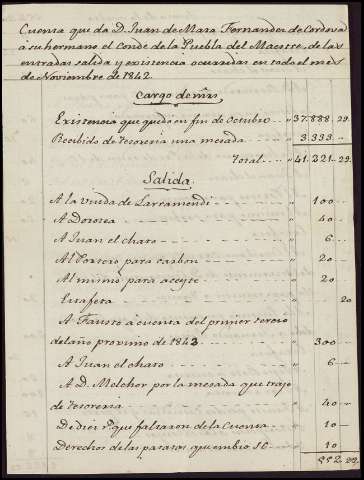 Cuenta que da D. Juan de Mata Fernandez de Cordova
a su hermano el Conde de la Puebla del Maestre, de las
entradas salida y existencia ocurridas en todo el mes
de Noviembre de 1842.
Cargo de mrs
Existencia que quedó en fin de Octubre . . " 37.888.. 29.
Recibido de tesoreria una mesada . . . . " 3.333..
Total . . . . " 41.221.. 29.
Salida
A la viuda de Larramendi - - - - - " 100 - -
A Dorotea - - - - - " 40 - -
A Juan el chato - - - - - " 6 - -
Al Portero para carbon - - - - - " 20 - -
Al mismo para aceyte - - - - - " 20 - -
Estafeta - - - - - " 20
A Fausto a cuenta del primer tercio
del año proximo de 1843 - - - - - " 300 - -
A Juan el chato - - - - - " 6 - -
A D. Melchor por la mesada que trajo
de tesoreria - - - - - " 40 - -
Di diez rs. que faltaron de la Cuenta - - " 10 - -
Derechos de las patatas que embio SE - - " 10 - -
552. 20.